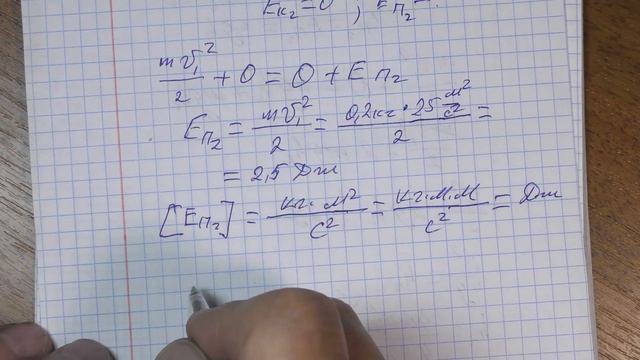 Eк₂=0 , Eп₂
mv₁²/2 + 0 = 0 + Eп₂
Eп₂ = mv₁²/2 = 0,2кг·25 м²/с²/2 =
= 2,5 Дж
[Eп₂] = кг·м²/с² = кг·м·м/с² = Дж